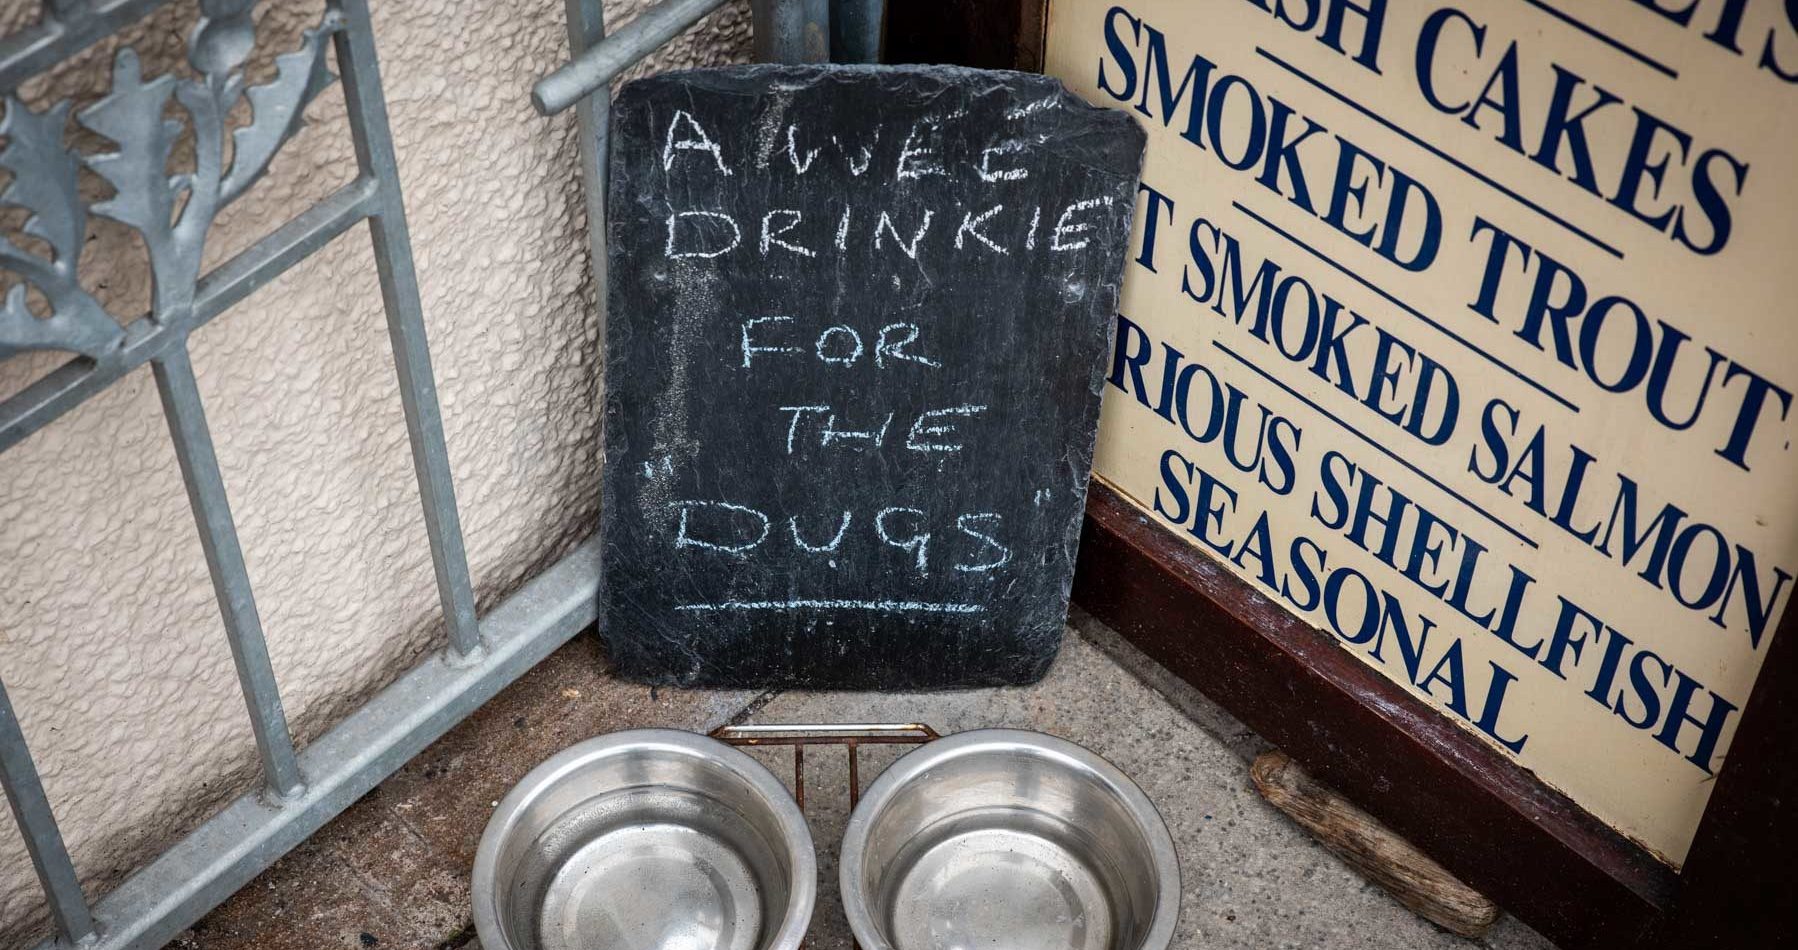 A WEE
DRINKIE
FOR
THE
"DUGS"
CAKES
SMOKED TROUT
SMOKED SALMON
SHELLFISH
SEASONAL